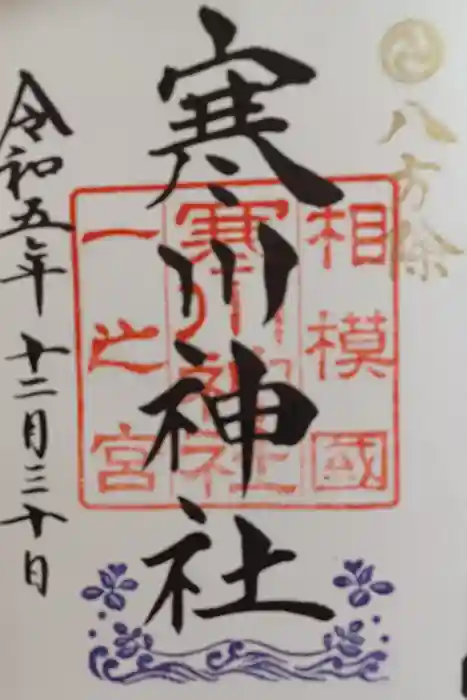 八方除
寒川神社
相模國
寒川神社
一之宮
令和五年十二月三十日